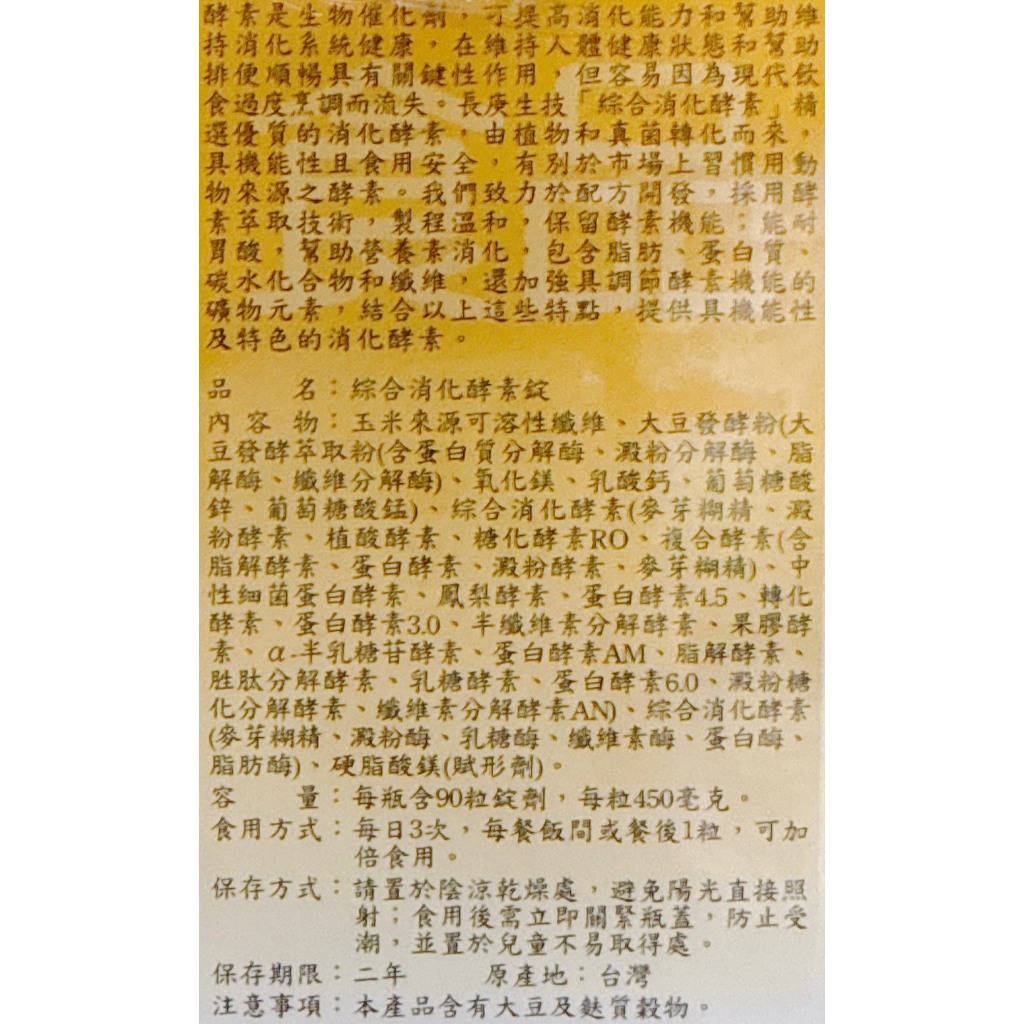 酵素是生物催化劑，可提高消化能力和幫助維
持消化系統健康，在維持人體健康狀態和幫助
排便順暢具有關鍵性作用，但容易因為現代飲
食過度烹調而流失。長庚生技「綜合消化酵素」精
選優質的消化酵素，由植物和真菌轉化而來，
具機能性且食用安全，有別於市場上習慣用動
物來源之酵素。我們致力於配方開發，採用酵
素萃取技術，製程溫和，保留酵素機能；能耐
胃酸，幫助營養素消化，包含脂肪、蛋白質、
碳水化合物和纖維，還加強具調節酵素機能的
礦物元素，結合以上這些特點，提供具機能性
及特色的消化酵素。
品　　名：綜合消化酵素錠
內 容 物：玉米來源可溶性纖維、大豆發酵粉(大
豆發酵萃取粉(含蛋白質分解酶、澱粉分解酶、脂
解酶、纖維分解酶)、氧化鎂、乳酸鈣、葡萄糖酸
鋅、葡萄糖酸錳)、綜合消化酵素(麥芽糊精、澱
粉酵素、植酸酵素、糖化酵素RO、複合酵素(含
脂解酵素、蛋白酵素、澱粉酵素、麥芽糊精)、中
性細菌蛋白酵素、鳳梨酵素、蛋白酵素4.5、轉化
酵素、蛋白酵素3.0、半纖維素分解酵素、果膠酵
素、α-半乳糖苷酵素、蛋白酵素AM、脂解酵素、
胜肽分解酵素、乳糖酵素、蛋白酵素6.0、澱粉糖
化分解酵素、纖維素分解酵素AN)、綜合消化酵素
(麥芽糊精、澱粉酶、乳糖酶、纖維素酶、蛋白酶、
脂肪酶)、硬脂酸鎂(賦形劑)。
容　　量：每瓶含90粒錠劑，每粒450毫克。
食用方式：每日3次，每餐飯間或餐後1粒，可加
倍食用。
保存方式：請置於陰涼乾燥處，避免陽光直接照
射；食用後需立即關緊瓶蓋，防止受
潮，並置於兒童不易取得處。
保存期限：二年　　原產地：台灣
注意事項：本產品含有大豆及麩質穀物。